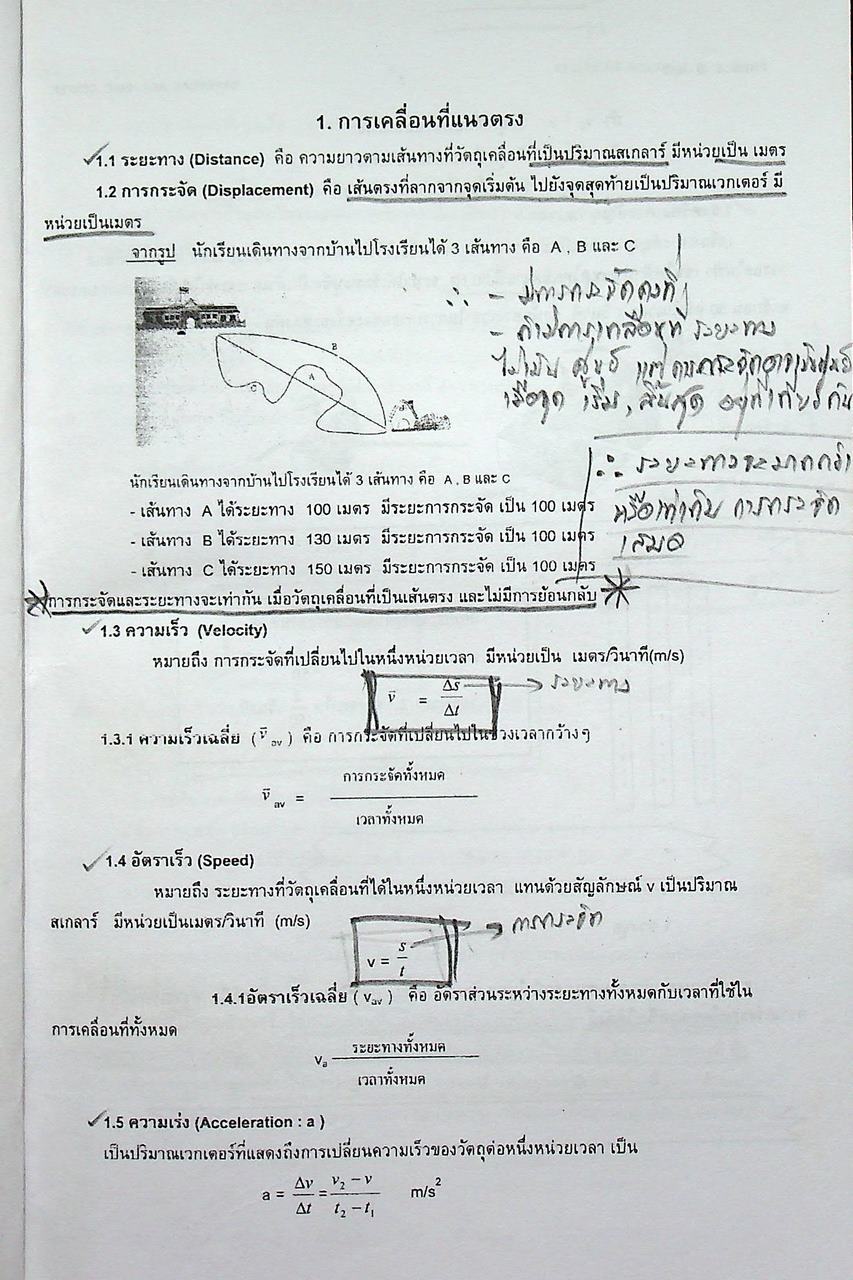 1. การเคลื่อนที่แนวตรง
1.1 ระยะทาง (Distance) คือ ความยาวตามเส้นทางที่วัตถุเคลื่อนที่เป็นปริมาณสเกลาร์ มีหน่วยเป็น เมตร
1.2 การกระจัด (Displacement) คือ เส้นตรงที่ลากจากจุดเริ่มต้น ไปยังจุดสุดท้ายเป็นปริมาณเวกเตอร์ มี
หน่วยเป็นเมตร
จากรูป นักเรียนเดินทางจากบ้านไปโรงเรียนได้ 3 เส้นทาง คือ A , B และ C
∴ - มีการกระจัดคงที่
- ถ้ามีการเคลื่อนที่ ระยะทาง
ไม่เป็น ศูนย์ แต่การกระจัดอาจเป็นศูนย์
เมื่อจุด เริ่ม, สิ้นสุด อยู่ที่เดียวกัน
B
A
C
∴ ระยะทางจะมากกว่า
หรือเท่ากับ การกระจัด
เสมอ
นักเรียนเดินทางจากบ้านไปโรงเรียนได้ 3 เส้นทาง คือ A , B และ C
- เส้นทาง A ได้ระยะทาง 100 เมตร มีระยะการกระจัด เป็น 100 เมตร
- เส้นทาง B ได้ระยะทาง 130 เมตร มีระยะการกระจัด เป็น 100 เมตร
- เส้นทาง C ได้ระยะทาง 150 เมตร มีระยะการกระจัด เป็น 100 เมตร
การกระจัดและระยะทางจะเท่ากัน เมื่อวัตถุเคลื่อนที่เป็นเส้นตรง และไม่มีการย้อนกลับ
1.3 ความเร็ว (Velocity)
หมายถึง การกระจัดที่เปลี่ยนไปในหนึ่งหน่วยเวลา มีหน่วยเป็น เมตร/วินาที(m/s)
v̄ = Δs/Δt → ระยะทาง
1.3.1 ความเร็วเฉลี่ย (v̄ av ) คือ การกระจัดที่เปลี่ยนไปในช่วงเวลากว้างๆ
การกระจัดทั้งหมด
v̄ av =
เวลาทั้งหมด
1.4 อัตราเร็ว (Speed)
หมายถึง ระยะทางที่วัตถุเคลื่อนที่ได้ในหนึ่งหน่วยเวลา แทนด้วยสัญลักษณ์ v เป็นปริมาณ
สเกลาร์ มีหน่วยเป็นเมตร/วินาที (m/s)
v = s/t → การกระจัด
1.4.1อัตราเร็วเฉลี่ย ( vav ) คือ อัตราส่วนระหว่างระยะทางทั้งหมดกับเวลาที่ใช้ใน
การเคลื่อนที่ทั้งหมด
ระยะทางทั้งหมด
va
เวลาทั้งหมด
1.5 ความเร่ง (Acceleration : a )
เป็นปริมาณเวกเตอร์ที่แสดงถึงการเปลี่ยนความเร็วของวัตถุต่อหนึ่งหน่วยเวลา เป็น
a = Δv/Δt = v₂ − v/t₂ − t₁ m/s²